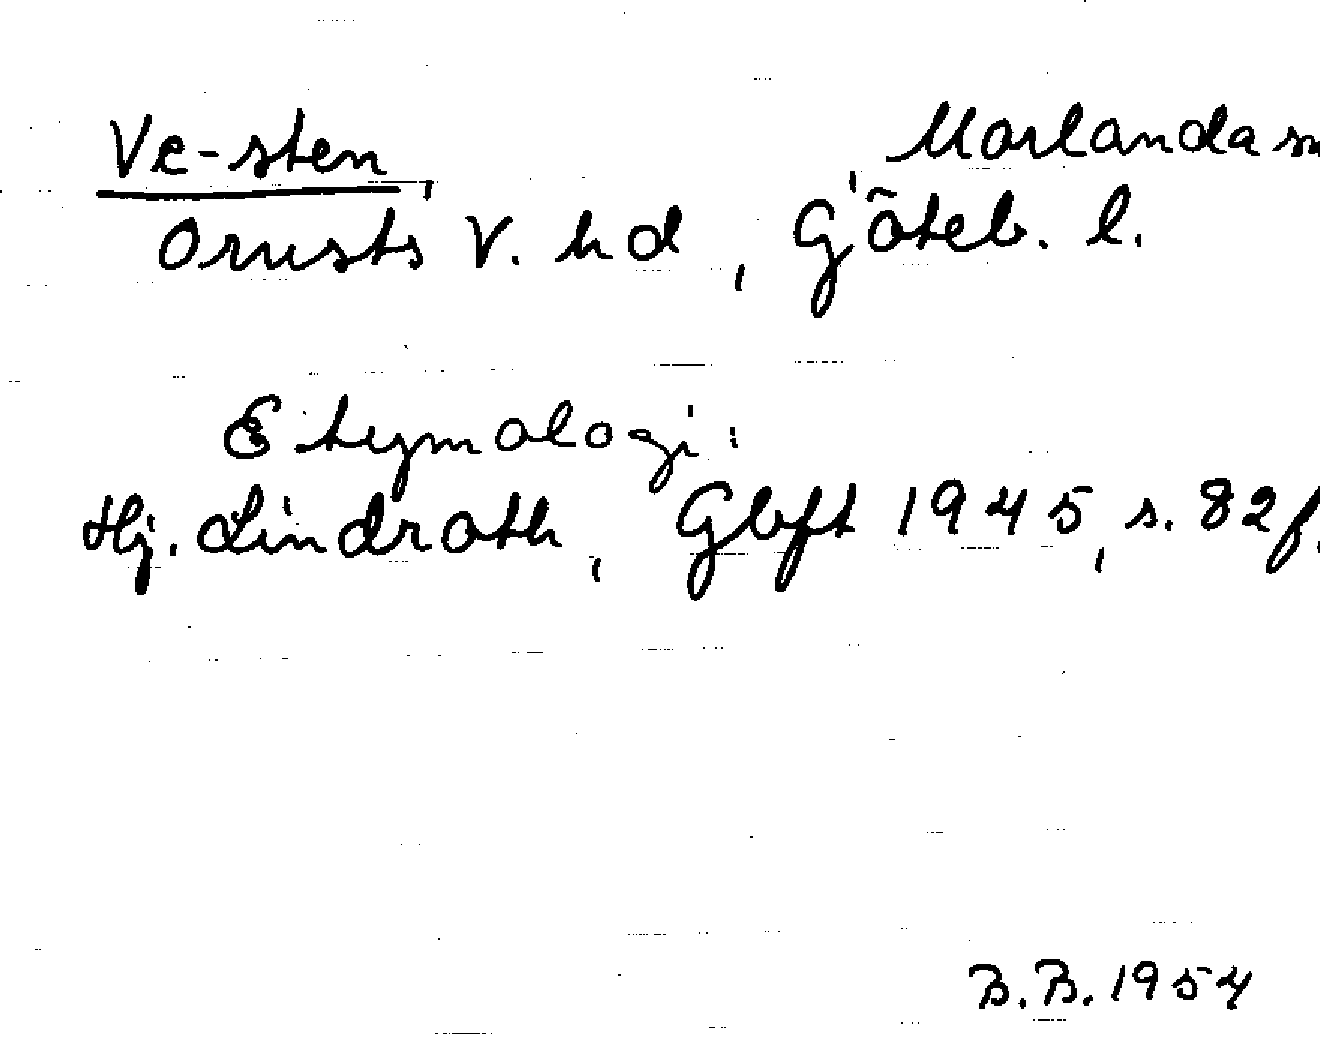 Ve-sten, Morlanda sn
Orusts V. hd, Göteb. l.
Etymologi:
Hj. Lindroth, Gbft 1945, s. 82 f.
B.B. 1954